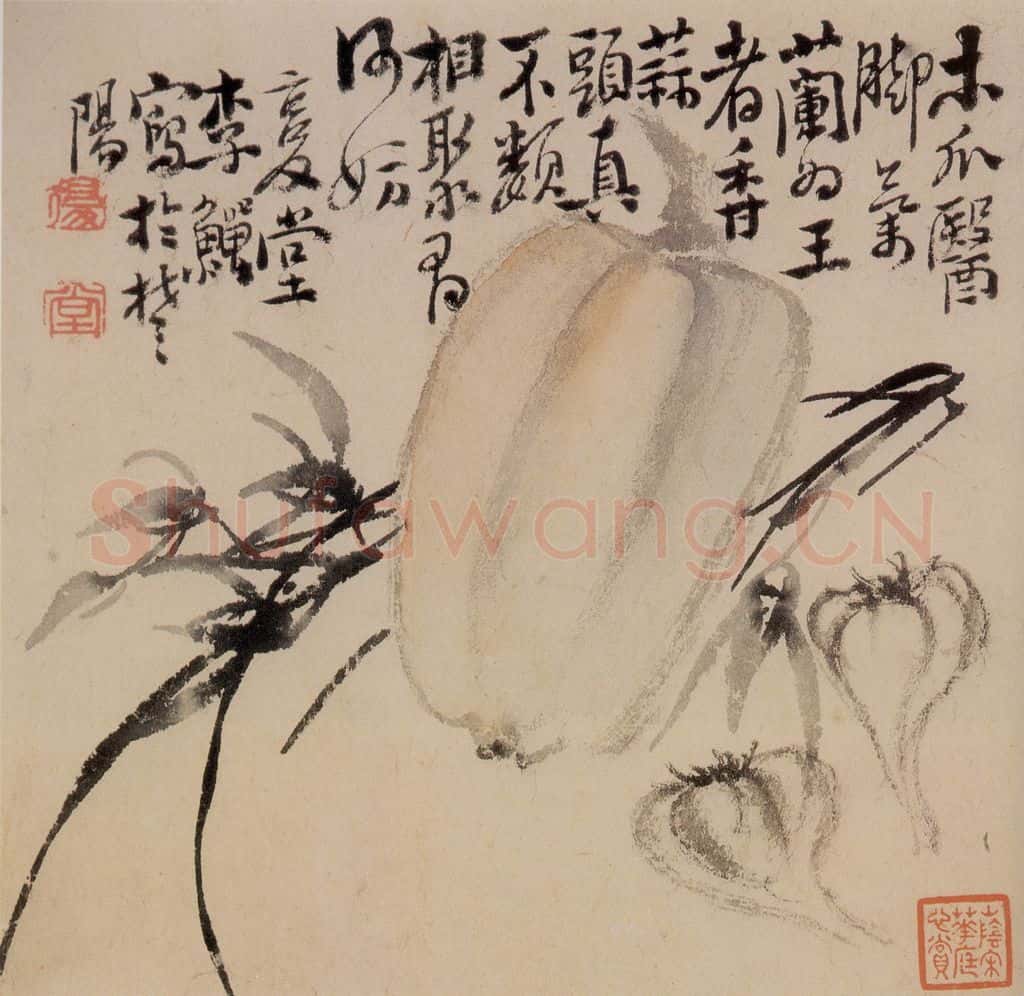 木瓜醫
脚氣
蘭為王
者香
蒜
頭真
不類
相聚有
何妨
復堂
李鱓
寫於楚
陽
堂
Shufawang.CN